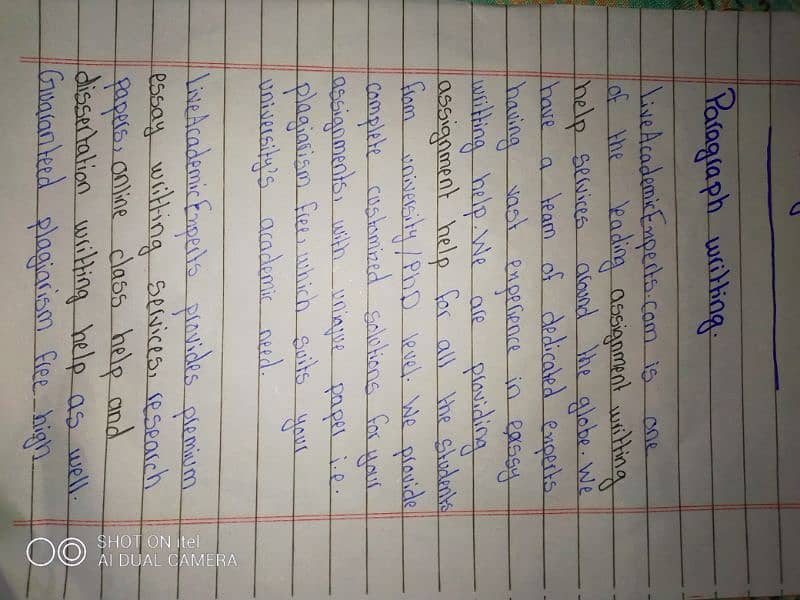 Paragraph writting.
LiveAcademicExperts.com is one
of the leading assignment writting
help services around the globe. We
have a team of dedicated experts
having vast experience in eassy
writting help. We are providing
assignment help for all the students
from university/PhD level. We provide
complete customized solutions for your
assignments, with unique paper i.e.
plagiarism free, which suits your
university's academic need.
LiveAcademicExperts provides premium
essay writting services, research
papers, online class help and
dissertation writting help as well.
Guaranteed plagiarism free high
SHOT ON itel
AI DUAL CAMERA